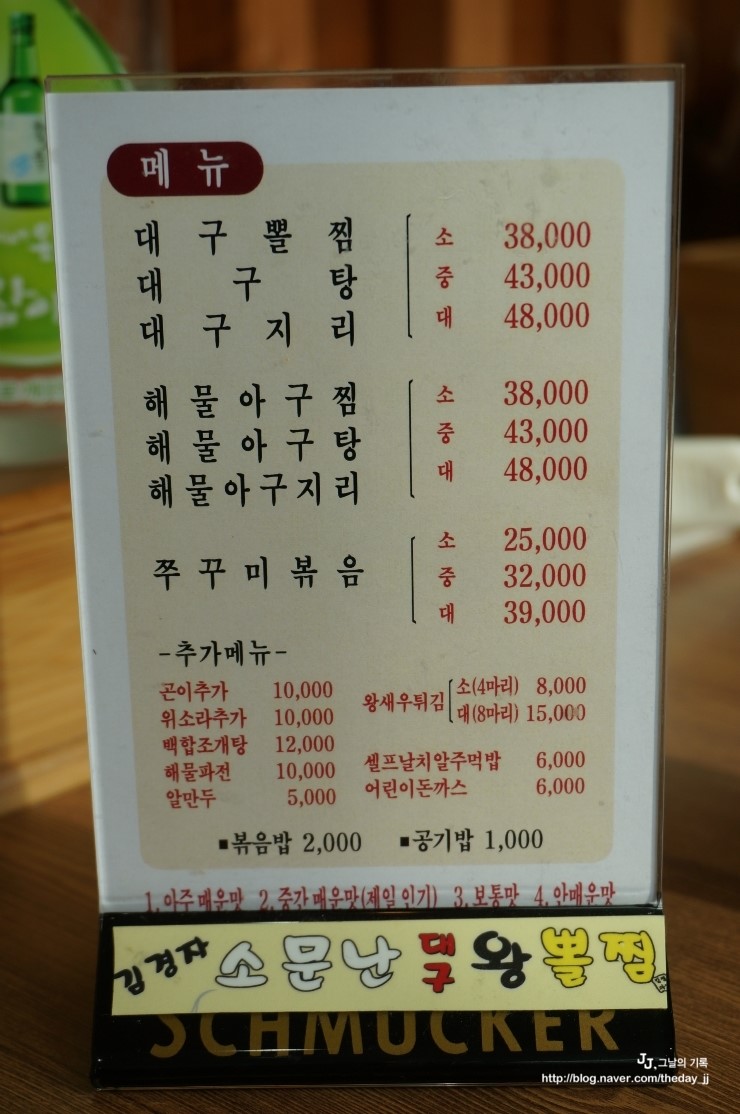 메뉴
대구뽈찜
대구탕
대구지리
소 38,000
중 43,000
대 48,000
해물아구찜
해물아구탕
해물아구지리
소 38,000
중 43,000
대 48,000
쭈꾸미볶음
소 25,000
중 32,000
대 39,000
-추가메뉴-
곤이추가 10,000
위소라추가 10,000
백합조개탕 12,000
해물파전 10,000
알만두 5,000
왕새우튀김 소(4마리) 8,000
대(8마리) 15,000
셀프날치알주먹밥 6,000
어린이돈까스 6,000
■볶음밥 2,000 ■공기밥 1,000
1. 아주매운맛 2. 중간매운맛(제일 인기) 3. 보통맛 4. 안매운맛
김경자 소문난 대구 왕뽈찜
SCHMUCKER
JJ. 그날의 기록
http://blog.naver.com/theday_jj